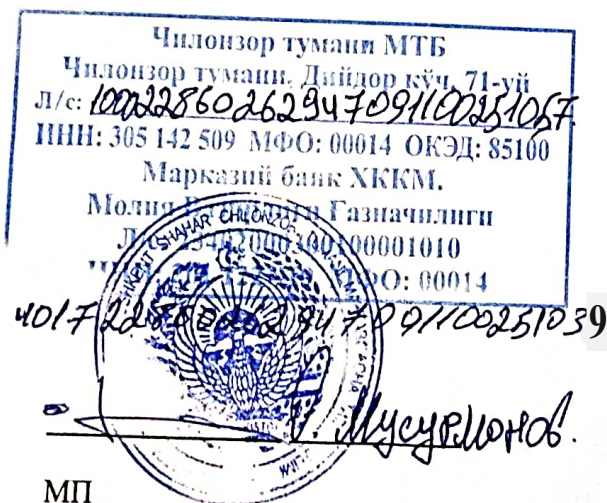 Чилонзор тумани МТБ
Чилонзор тумани, Дийдор кўч, 71-уй
Л/с: 100022860262947091100251057
ИНН: 305 142 509 МФО: 00014 ОКЭД: 85100
Марказий банк ХККМ.
Молия Ғазначилиги
23402000300100001010
МФО: 00014
9
Мусурмонов.
МП